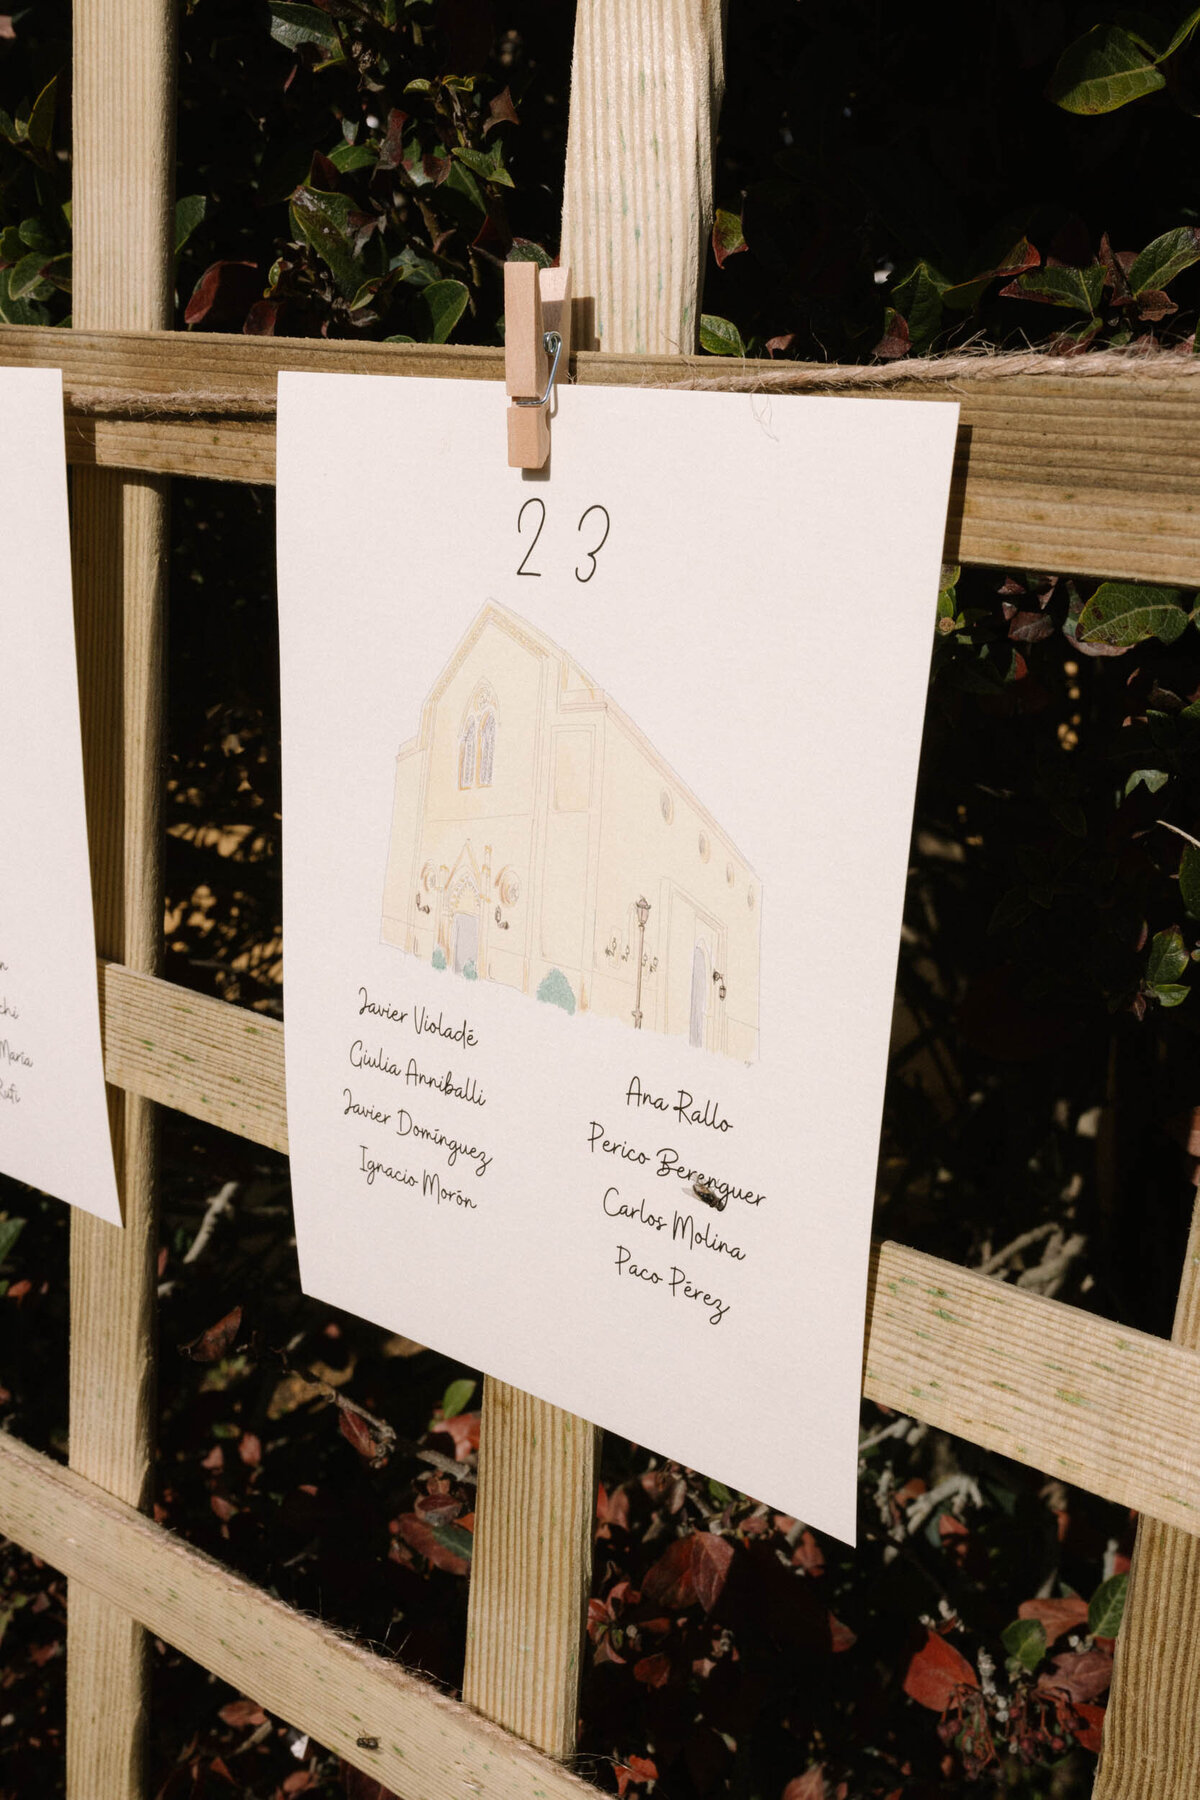 23
Javier Violadé
Giulia Anniballi
Javier Domínguez
Ignacio Morón
Ana Rallo
Perico Berenguer
Carlos Molina
Paco Pérez
María
Rufi